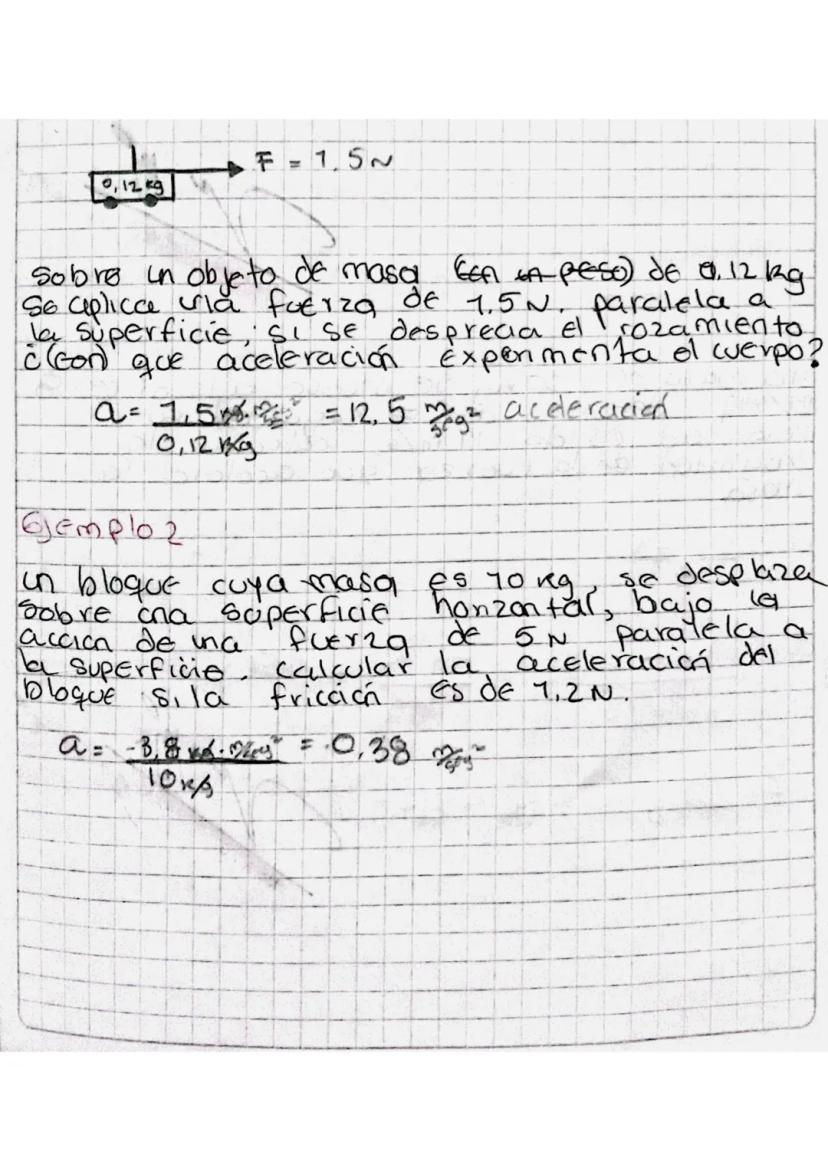 F = 1.5 N
0,12 kg
sobre un objeto de masa (con un peso) de 0,12 kg
se aplica una fuerza de 1.5 N. paralela a
la superficie; si se desprecia el rozamiento
¿(con) que aceleración experimenta el cuerpo?
a = 1,5 kg.m/seg² = 12,5 m/seg² aceleración
0,12 kg
Ejemplo 2
un bloque cuya masa es 10 kg, se desplaza
sobre una superficie horizontal, bajo la
acción de una fuerza de 5 N paralela a
la superficie. calcular la aceleración del
bloque si la fricción es de 1,2 N.
a = -3,8 kg.m/seg² = 0,38 m/seg²
10 kg